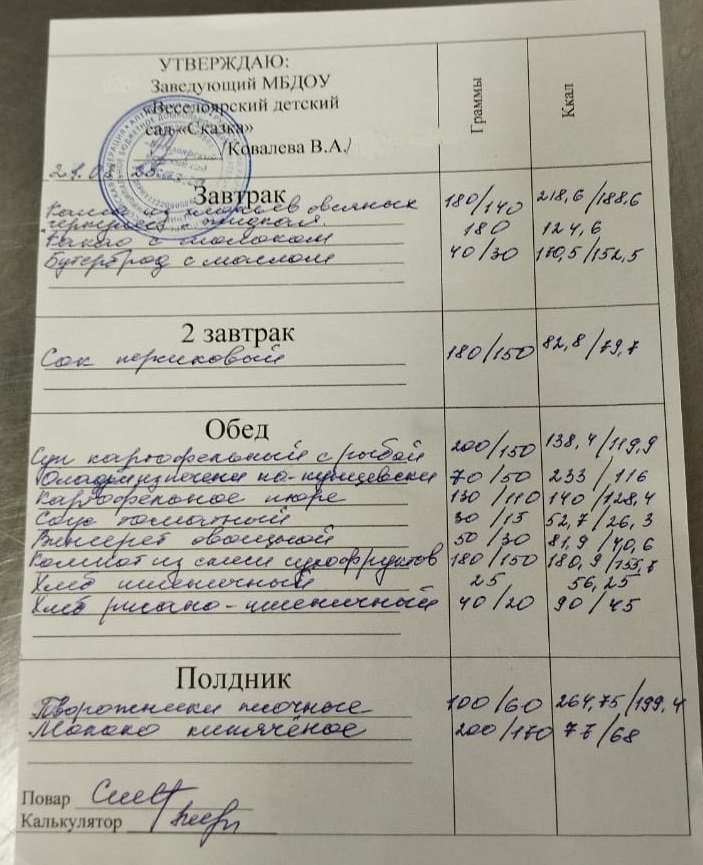 УТВЕРЖДАЮ:
Заведующий МБДОУ
«Веселоярский детский
сад «Сказка»
/Ковалева В.А./
Граммы
Ккал
Завтрак
Каша из хлопьев овсяных 180/140 218,6/188.6
геркулес жидкая
Какао с молоком 180 124,6
Бутерброд с маслом 40/30 170,5/152,5
2 завтрак
Сок персиковый 180/150 82,8/79,7
Обед
Суп картофельный с рыбой 200/150 138,4/119,9
Оладьи из печени по-кунцевски 70/50 233/116
Картофельное пюре 130/110 140/128,4
Соус томатный 30/15 52,7/26,3
Винегрет овощной 50/30 81,9/40,6
Компот из смеси сухофруктов 180/150 180,9/155,7
Хлеб пшеничный 25 56,25
Хлеб ржано-пшеничный 40/20 90/45
Полдник
Творожники песочные 100/60 264,75/199,4
Молоко кипячёное 200/170 77/68
Повар
Калькулятор